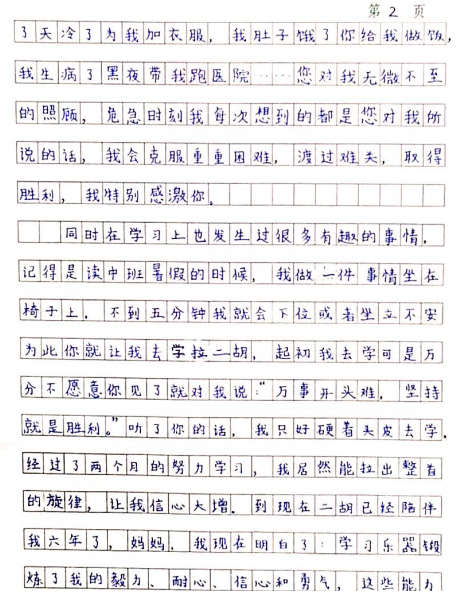 第 2 页
了天冷了为我加衣服，我肚子饿了你给我做饭，
我生病了黑夜带我跑医院……您对我无微不至
的照顾，危急时刻我每次想到的都是您对我所
说的话，我会克服重重困难，渡过难关，取得
胜利，我特别感激你。
同时在学习上也发生过很多有趣的事情，
记得是读中班暑假的时候，我做一件事情坐在
椅子上，不到五分钟我就会下位或者坐立不安
为此你就让我去学拉二胡，起初我去学可是万
分不愿意你见了就对我说：“万事开头难，坚持
就是胜利。”听了你的话，我只好硬着头皮去学。
经过了两个月的努力学习，我居然能拉出整首
的旋律，让我信心大增。到现在二胡已经陪伴
我六年了，妈妈，我现在明白了：学习乐器锻
炼了我的毅力、耐心、信心和勇气，这些能力